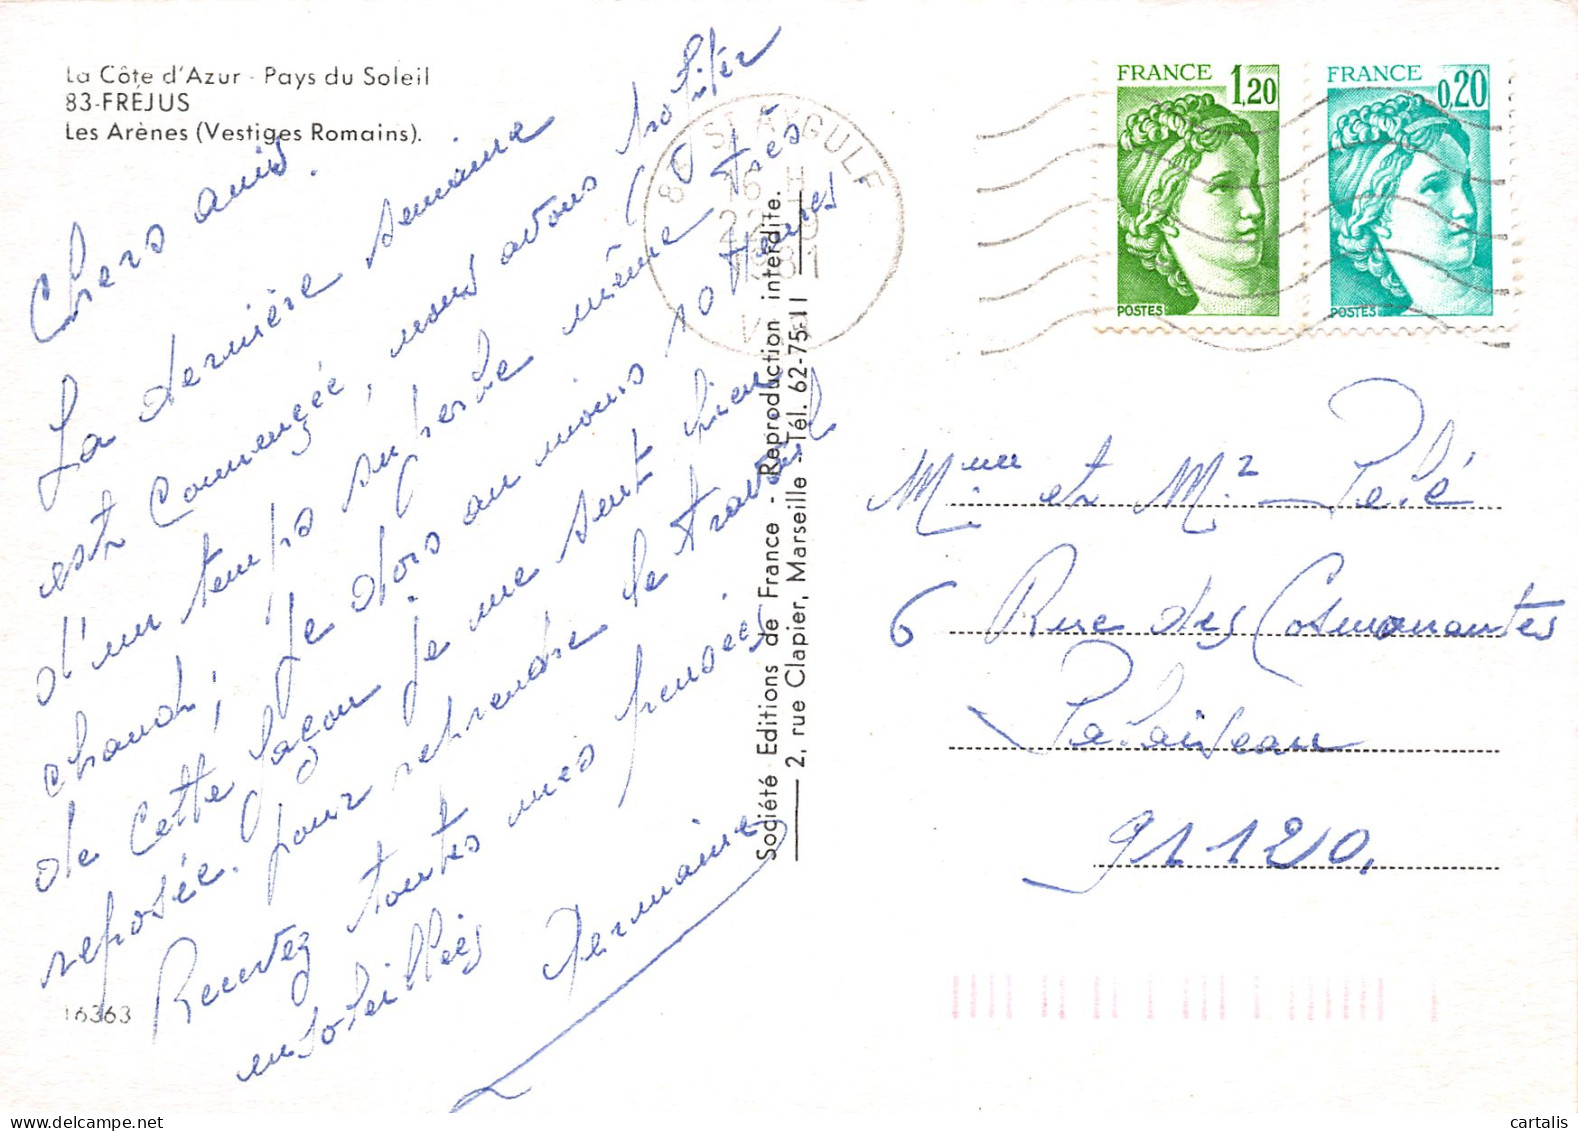 La Côte d'Azur - Pays du Soleil
83-FRÉJUS
Les Arènes (Vestiges Romains).
Chers amis.
La dernière semaine
est commençée, nous avons profiter
d'un temps superbe même très
chaud; je dors au moins 10 Heures
de cette façon je me sent bien
reposée. pour reprendre le travail
Recevez toutes mes pensées
ensoleillées Germaine
16363
Société Editions de France - Reproduction interdite.
2, rue Clapier, Marseille - Tél. 62-75-11
ST AYGULF
16 H
1981
VAR
FRANCE 1,20
POSTES
FRANCE 0,20
POSTES
Mme et Mr Pelé
6 Rue des Cosmonantes
Palaiseau
91120.
cartalis